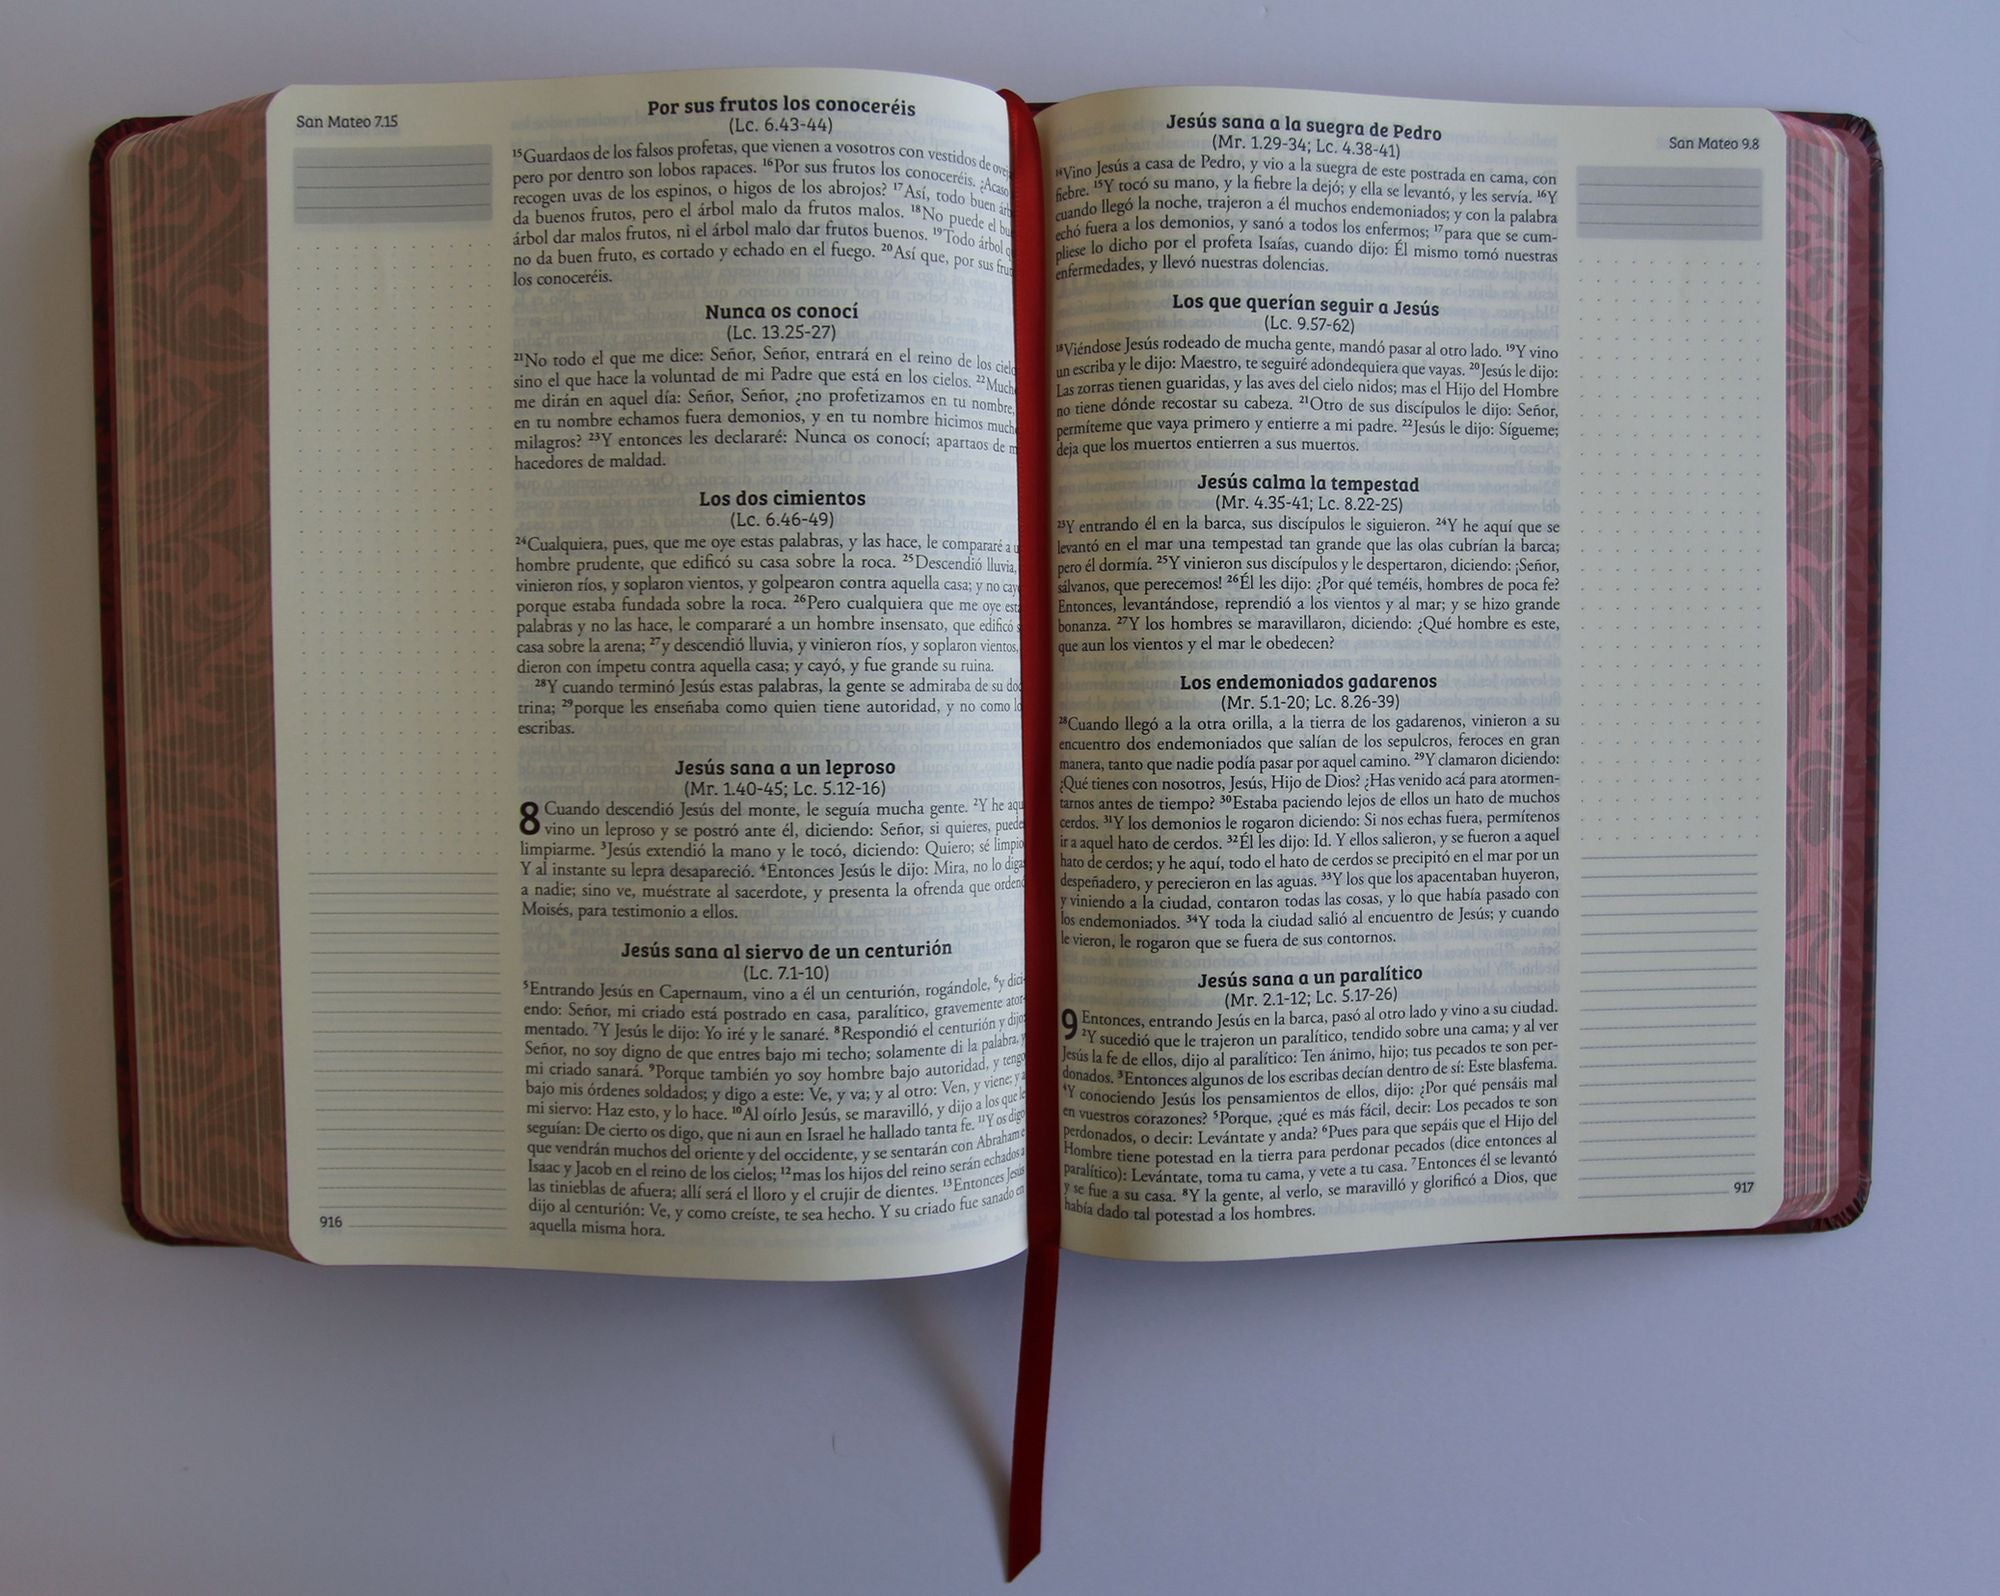 San Mateo 7.15
Por sus frutos los conoceréis
(Lc. 6.43-44)
15Guardaos de los falsos profetas, que vienen a vosotros con vestidos de
pero por dentro son lobos rapaces. 16Por sus frutos los conoceréis. ¿Acaso
recogen uvas de los espinos, o higos de los abrojos? 17Así, todo buen
da buenos frutos, pero el árbol malo da frutos malos. 18No puede el
árbol dar malos frutos, ni el árbol malo dar frutos buenos. 19Todo árbol
no da buen fruto, es cortado y echado en el fuego. 20Así que, por sus
los conoceréis.
Nunca os conocí
(Lc. 13.25-27)
21No todo el que me dice: Señor, Señor, entrará en el reino de los
sino el que hace la voluntad de mi Padre que está en los cielos. 22
me dirán en aquel día: Señor, Señor, ¿no profetizamos en tu nombre,
en tu nombre echamos fuera demonios, y en tu nombre hicimos
milagros? 23Y entonces les declararé: Nunca os conocí; apartaos de
hacedores de maldad.
Los dos cimientos
(Lc. 6.46-49)
24Cualquiera, pues, que me oye estas palabras, y las hace, le compararé a
hombre prudente, que edificó su casa sobre la roca. 25Descendió lluvia,
vinieron ríos, y soplaron vientos, y golpearon contra aquella casa; y no
porque estaba fundada sobre la roca. 26Pero cualquiera que me oye
palabras y no las hace, le compararé a un hombre insensato, que edificó
casa sobre la arena; 27y descendió lluvia, y vinieron ríos, y soplaron vientos,
dieron con ímpetu contra aquella casa; y cayó, y fue grande su ruina.
28Y cuando terminó Jesús estas palabras, la gente se admiraba de su doc
trina; 29porque les enseñaba como quien tiene autoridad, y no como
escribas.
Jesús sana a un leproso
(Mr. 1.40-45; Lc. 5.12-16)
8 Cuando descendió Jesús del monte, le seguía mucha gente. 2Y he aquí
vino un leproso y se postró ante él, diciendo: Señor, si quieres, puede
limpiarme. 3Jesús extendió la mano y le tocó, diciendo: Quiero; sé limpio
Y al instante su lepra desapareció. 4Entonces Jesús le dijo: Mira, no lo diga
a nadie; sino ve, muéstrate al sacerdote, y presenta la ofrenda que ordenó
Moisés, para testimonio a ellos.
Jesús sana al siervo de un centurión
(Lc. 7.1-10)
5Entrando Jesús en Capernaum, vino a él un centurión, rogándole, 6y dici-
endo: Señor, mi criado está postrado en casa, paralítico, gravemente ator-
mentado. 7Y Jesús le dijo: Yo iré y le sanaré. 8Respondió el centurión y dijo:
Señor, no soy digno de que entres bajo mi techo; solamente di la palabra, y
mi criado sanará. 9Porque también yo soy hombre bajo autoridad, y tengo
bajo mis órdenes soldados; y digo a este: Ve, y va; y al otro: Ven, y viene; y a
mi siervo: Haz esto, y lo hace. 10Al oírlo Jesús, se maravilló, y dijo a los que le
seguían: De cierto os digo, que ni aun en Israel he hallado tanta fe. 11Y os digo
que vendrán muchos del oriente y del occidente, y se sentarán con Abraham e
Isaac y Jacob en el reino de los cielos; 12mas los hijos del reino serán echados a
las tinieblas de afuera; allí será el lloro y el crujir de dientes. 13Entonces Jesús
dijo al centurión: Ve, y como creíste, te sea hecho. Y su criado fue sanado en
aquella misma hora.
916
San Mateo 9.8
Jesús sana a la suegra de Pedro
(Mr. 1.29-34; Lc. 4.38-41)
14Vino Jesús a casa de Pedro, y vio a la suegra de este postrada en cama, con
fiebre. 15Y tocó su mano, y la fiebre la dejó; y ella se levantó, y les servía. 16Y
cuando llegó la noche, trajeron a él muchos endemoniados; y con la palabra
echó fuera a los demonios, y sanó a todos los enfermos; 17para que se cum-
pliese lo dicho por el profeta Isaías, cuando dijo: Él mismo tomó nuestras
enfermedades, y llevó nuestras dolencias.
Los que querían seguir a Jesús
(Lc. 9.57-62)
18Viéndose Jesús rodeado de mucha gente, mandó pasar al otro lado. 19Y vino
un escriba y le dijo: Maestro, te seguiré adondequiera que vayas. 20Jesús le dijo:
Las zorras tienen guaridas, y las aves del cielo nidos; mas el Hijo del Hombre
no tiene dónde recostar su cabeza. 21Otro de sus discípulos le dijo: Señor,
permíteme que vaya primero y entierre a mi padre. 22Jesús le dijo: Sígueme;
deja que los muertos entierren a sus muertos.
Jesús calma la tempestad
(Mr. 4.35-41; Lc. 8.22-25)
23Y entrando él en la barca, sus discípulos le siguieron. 24Y he aquí que se
levantó en el mar una tempestad tan grande que las olas cubrían la barca;
pero él dormía. 25Y vinieron sus discípulos y le despertaron, diciendo: ¡Señor,
sálvanos, que perecemos! 26Él les dijo: ¿Por qué teméis, hombres de poca fe?
Entonces, levantándose, reprendió a los vientos y al mar; y se hizo grande
bonanza. 27Y los hombres se maravillaron, diciendo: ¿Qué hombre es este,
que aun los vientos y el mar le obedecen?
Los endemoniados gadarenos
(Mr. 5.1-20; Lc. 8.26-39)
28Cuando llegó a la otra orilla, a la tierra de los gadarenos, vinieron a su
encuentro dos endemoniados que salían de los sepulcros, feroces en gran
manera, tanto que nadie podía pasar por aquel camino. 29Y clamaron diciendo:
¿Qué tienes con nosotros, Jesús, Hijo de Dios? ¿Has venido acá para atormen-
tarnos antes de tiempo? 30Estaba paciendo lejos de ellos un hato de muchos
cerdos. 31Y los demonios le rogaron diciendo: Si nos echas fuera, permítenos
ir a aquel hato de cerdos. 32Él les dijo: Id. Y ellos salieron, y se fueron a aquel
hato de cerdos; y he aquí, todo el hato de cerdos se precipitó en el mar por un
despeñadero, y perecieron en las aguas. 33Y los que los apacentaban huyeron,
y viniendo a la ciudad, contaron todas las cosas, y lo que había pasado con
los endemoniados. 34Y toda la ciudad salió al encuentro de Jesús; y cuando
le vieron, le rogaron que se fuera de sus contornos.
Jesús sana a un paralítico
(Mr. 2.1-12; Lc. 5.17-26)
9 Entonces, entrando Jesús en la barca, pasó al otro lado y vino a su ciudad.
2Y sucedió que le trajeron un paralítico, tendido sobre una cama; y al ver
Jesús la fe de ellos, dijo al paralítico: Ten ánimo, hijo; tus pecados te son per-
donados. 3Entonces algunos de los escribas decían dentro de sí: Este blasfema.
4Y conociendo Jesús los pensamientos de ellos, dijo: ¿Por qué pensáis mal
en vuestros corazones? 5Porque, ¿qué es más fácil, decir: Los pecados te son
perdonados, o decir: Levántate y anda? 6Pues para que sepáis que el Hijo del
Hombre tiene potestad en la tierra para perdonar pecados (dice entonces al
paralítico): Levántate, toma tu cama, y vete a tu casa. 7Entonces él se levantó
y se fue a su casa. 8Y la gente, al verlo, se maravilló y glorificó a Dios, que
había dado tal potestad a los hombres.
917